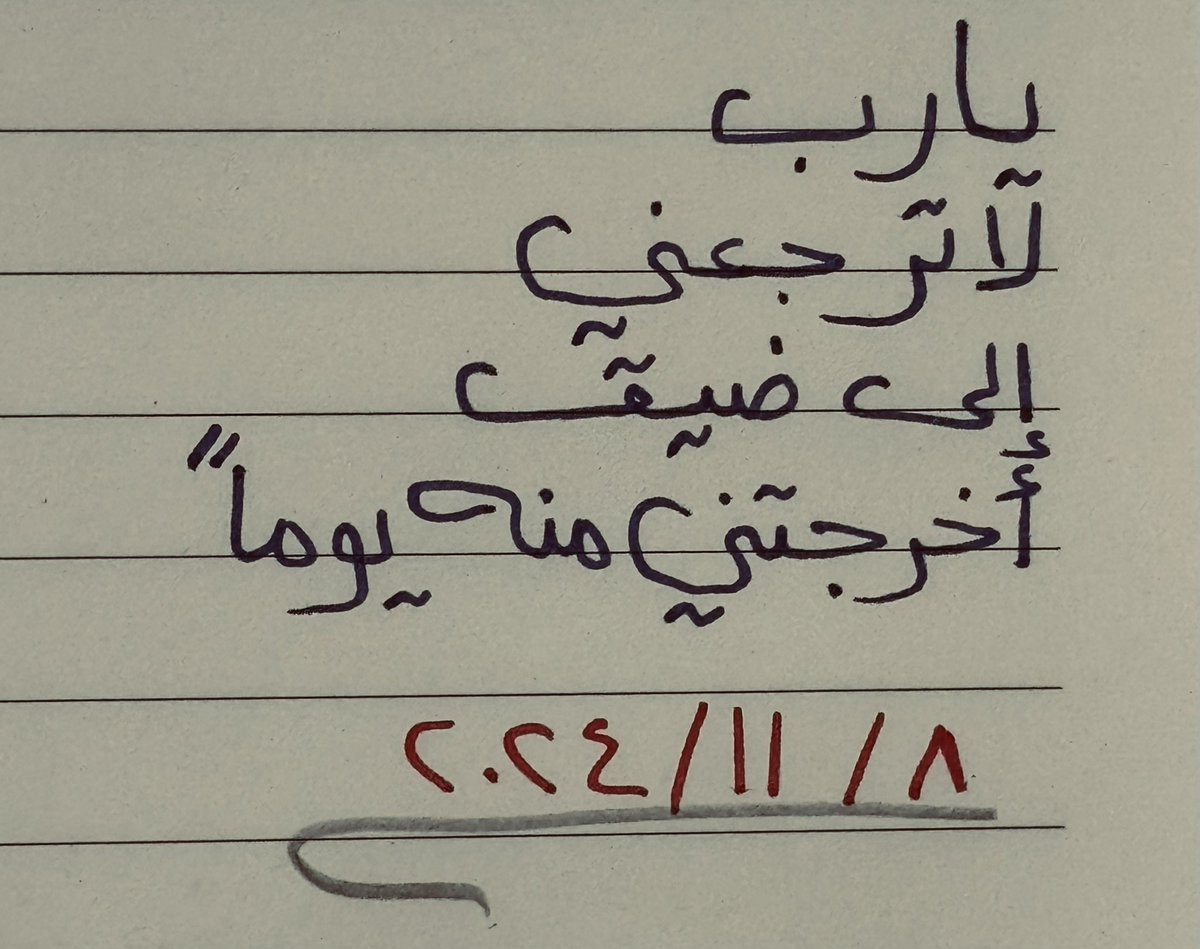 يارب
لا ترجعني
إلى ضيق
أخرجتني منه يوماً
٨ / ١١ / ٢٠٢٤